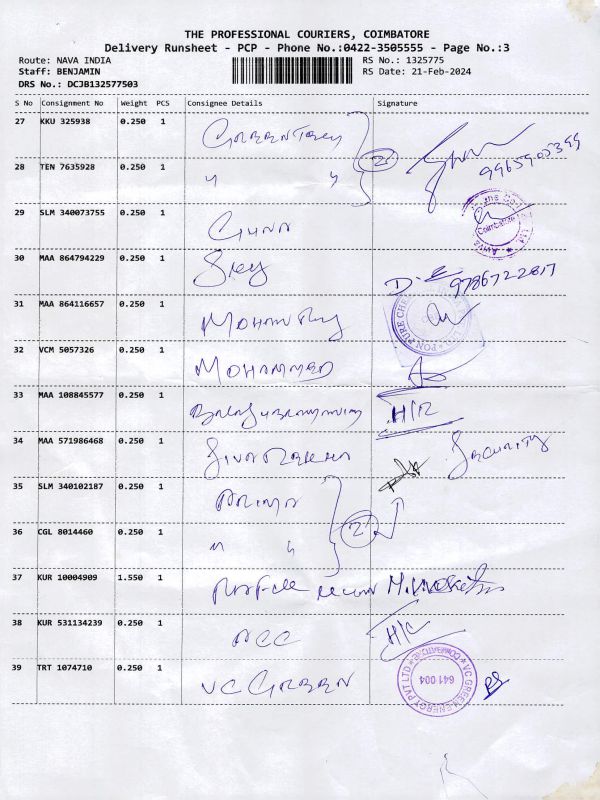 THE PROFESSIONAL COURIERS, COIMBATORE
Delivery Runsheet - PCP - Phone No.:0422-3505555 - Page No.:3
Route: NAVA INDIA
RS No.: 1325775
Staff: BENJAMIN
RS Date: 21-Feb-2024
DRS No.: DCJB132577503
S No Consignment No Weight PCS Consignee Details Signature
27 KKU 325938 0.250 1
2
9965905399
28 TEN 7635928 0.250 1 " "
29 SLM 340073755 0.250 1
30 MAA 864794229 0.250 1
9786722817
31 MAA 864116657 0.250 1
PON PURE CHE
32 VCM 5057326 0.250 1 MOHAMMED
33 MAA 108845577 0.250 1 H/R
34 MAA 571986468 0.250 1 SECURITY
35 SLM 340102187 0.250 1
2
36 CGL 8014460 0.250 1 " "
37 KUR 10004909 1.550 1
38 KUR 531134239 0.250 1 ACC H/C
39 TRT 1074710 0.250 1 VC GREEN
VC GREEN ENERGY PVT LTD
COIMBATORE
641 004